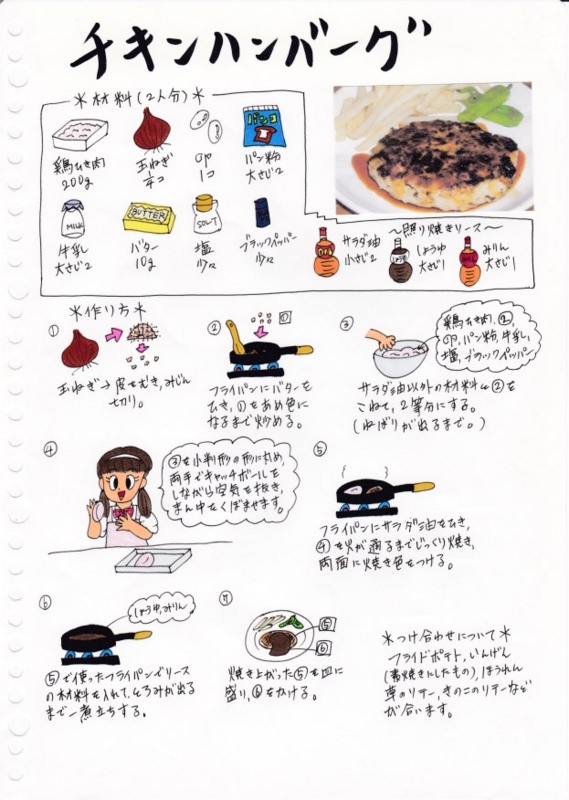 チキンハンバーグ
＊材料(2人分)＊
鶏ひき肉
200g
玉ねぎ
卵
1コ
パンコ
パン粉
大さじ2
MILK
牛乳
大さじ2
BUTTER
バター
10g
SOLT
塩
少々
ブラックペッパー
少々
〜照り焼きソース〜
サラダ油
小さじ2
しょうゆ
大さじ1
みりん
大さじ1
＊作り方＊
①
玉ねぎ→皮をむき、みじん
切り。
②
①
フライパンにバターを
ひき、①をあめ色に
なるまで炒める。
③
鶏ひき肉、②、
卵、パン粉、牛乳、
塩、ブラックペッパー
サラダ油以外の材料と②を
こねて、2等分にする。
(ねばりが出るまで。)
④
③を小判形の形に丸め、
両手でキャッチボールを
しながら空気を抜き、
まん中をくぼませます。
⑤
フライパンにサラダ油をひき、
④を火が通るまでじっくり焼き、
両面に焼き色をつける。
⑥
しょうゆ、みりん
⑤で使ったフライパンでソース
の材料を入れて、とろみが出る
まで一煮立ちする。
⑦
⑤
⑥
焼き上がった⑤を皿に
盛り、⑥をかける。
＊つけ合わせについて＊
フライドポテト、いんげん
(素焼きにしたもの)、ほうれん
草のソテー、きのこのソテーなど
が合います。